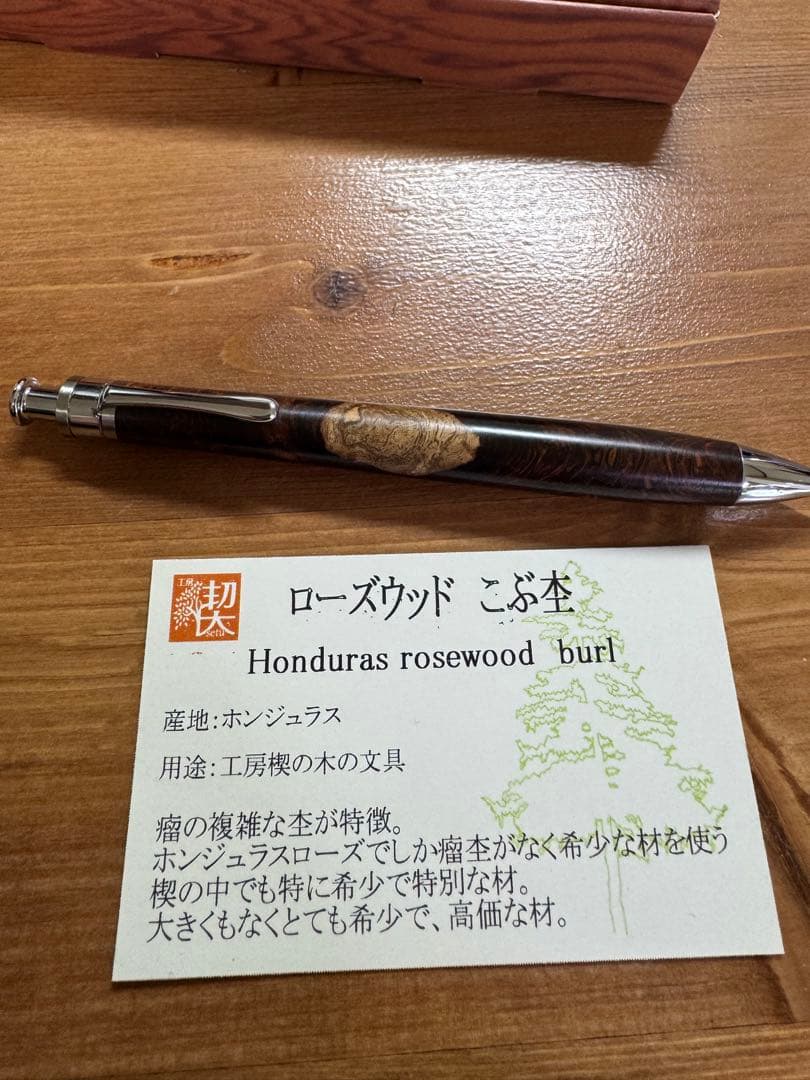 工房
楔
setu
ローズウッド こぶ杢
Honduras rosewood burl
産地:ホンジュラス
用途:工房楔の木の文具
瘤の複雑な杢が特徴。
ホンジュラスローズでしか瘤杢がなく希少な材を使う
楔の中でも特に希少で特別な材。
大きくもなくとても希少で、高価な材。